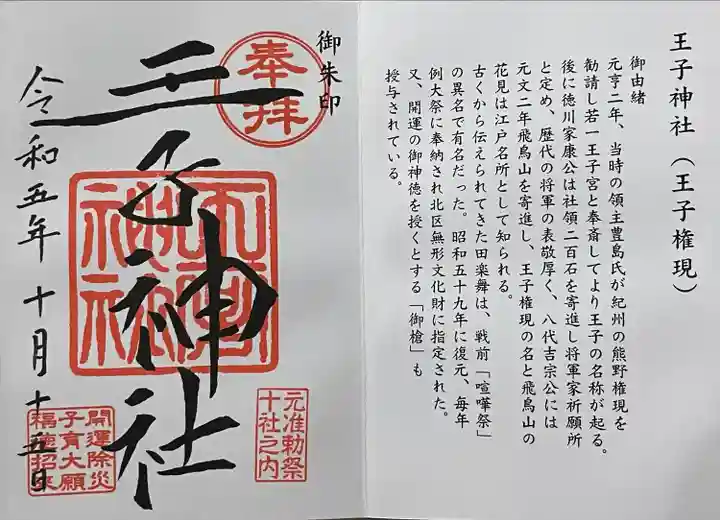 王子神社(王子権現)
御由緒
元亨二年、当時の領主豊島氏が紀州の熊野権現を
勧請し若一王子宮と奉斎してより王子の名称が起る。
後に徳川家康公は社領二百石を寄進し将軍家祈願所
と定め、歴代の将軍の表敬厚く、八代吉宗公には
元文二年飛鳥山を寄進し、王子権現の名と飛鳥山の
花見は江戸名所として知られる。
古くから伝えられてきた田楽舞は、戦前「喧嘩祭」
の異名で有名だった。昭和五十九年に復元、毎年
例大祭に奉納され北区無形文化財に指定された。
又、開運の御神徳を授くとする「御槍」も
授与されている。
御朱印
奉拝
王子神社
元准勅祭
十社之内
令和五年十月十五日
開運除災
子育大願
福徳招来